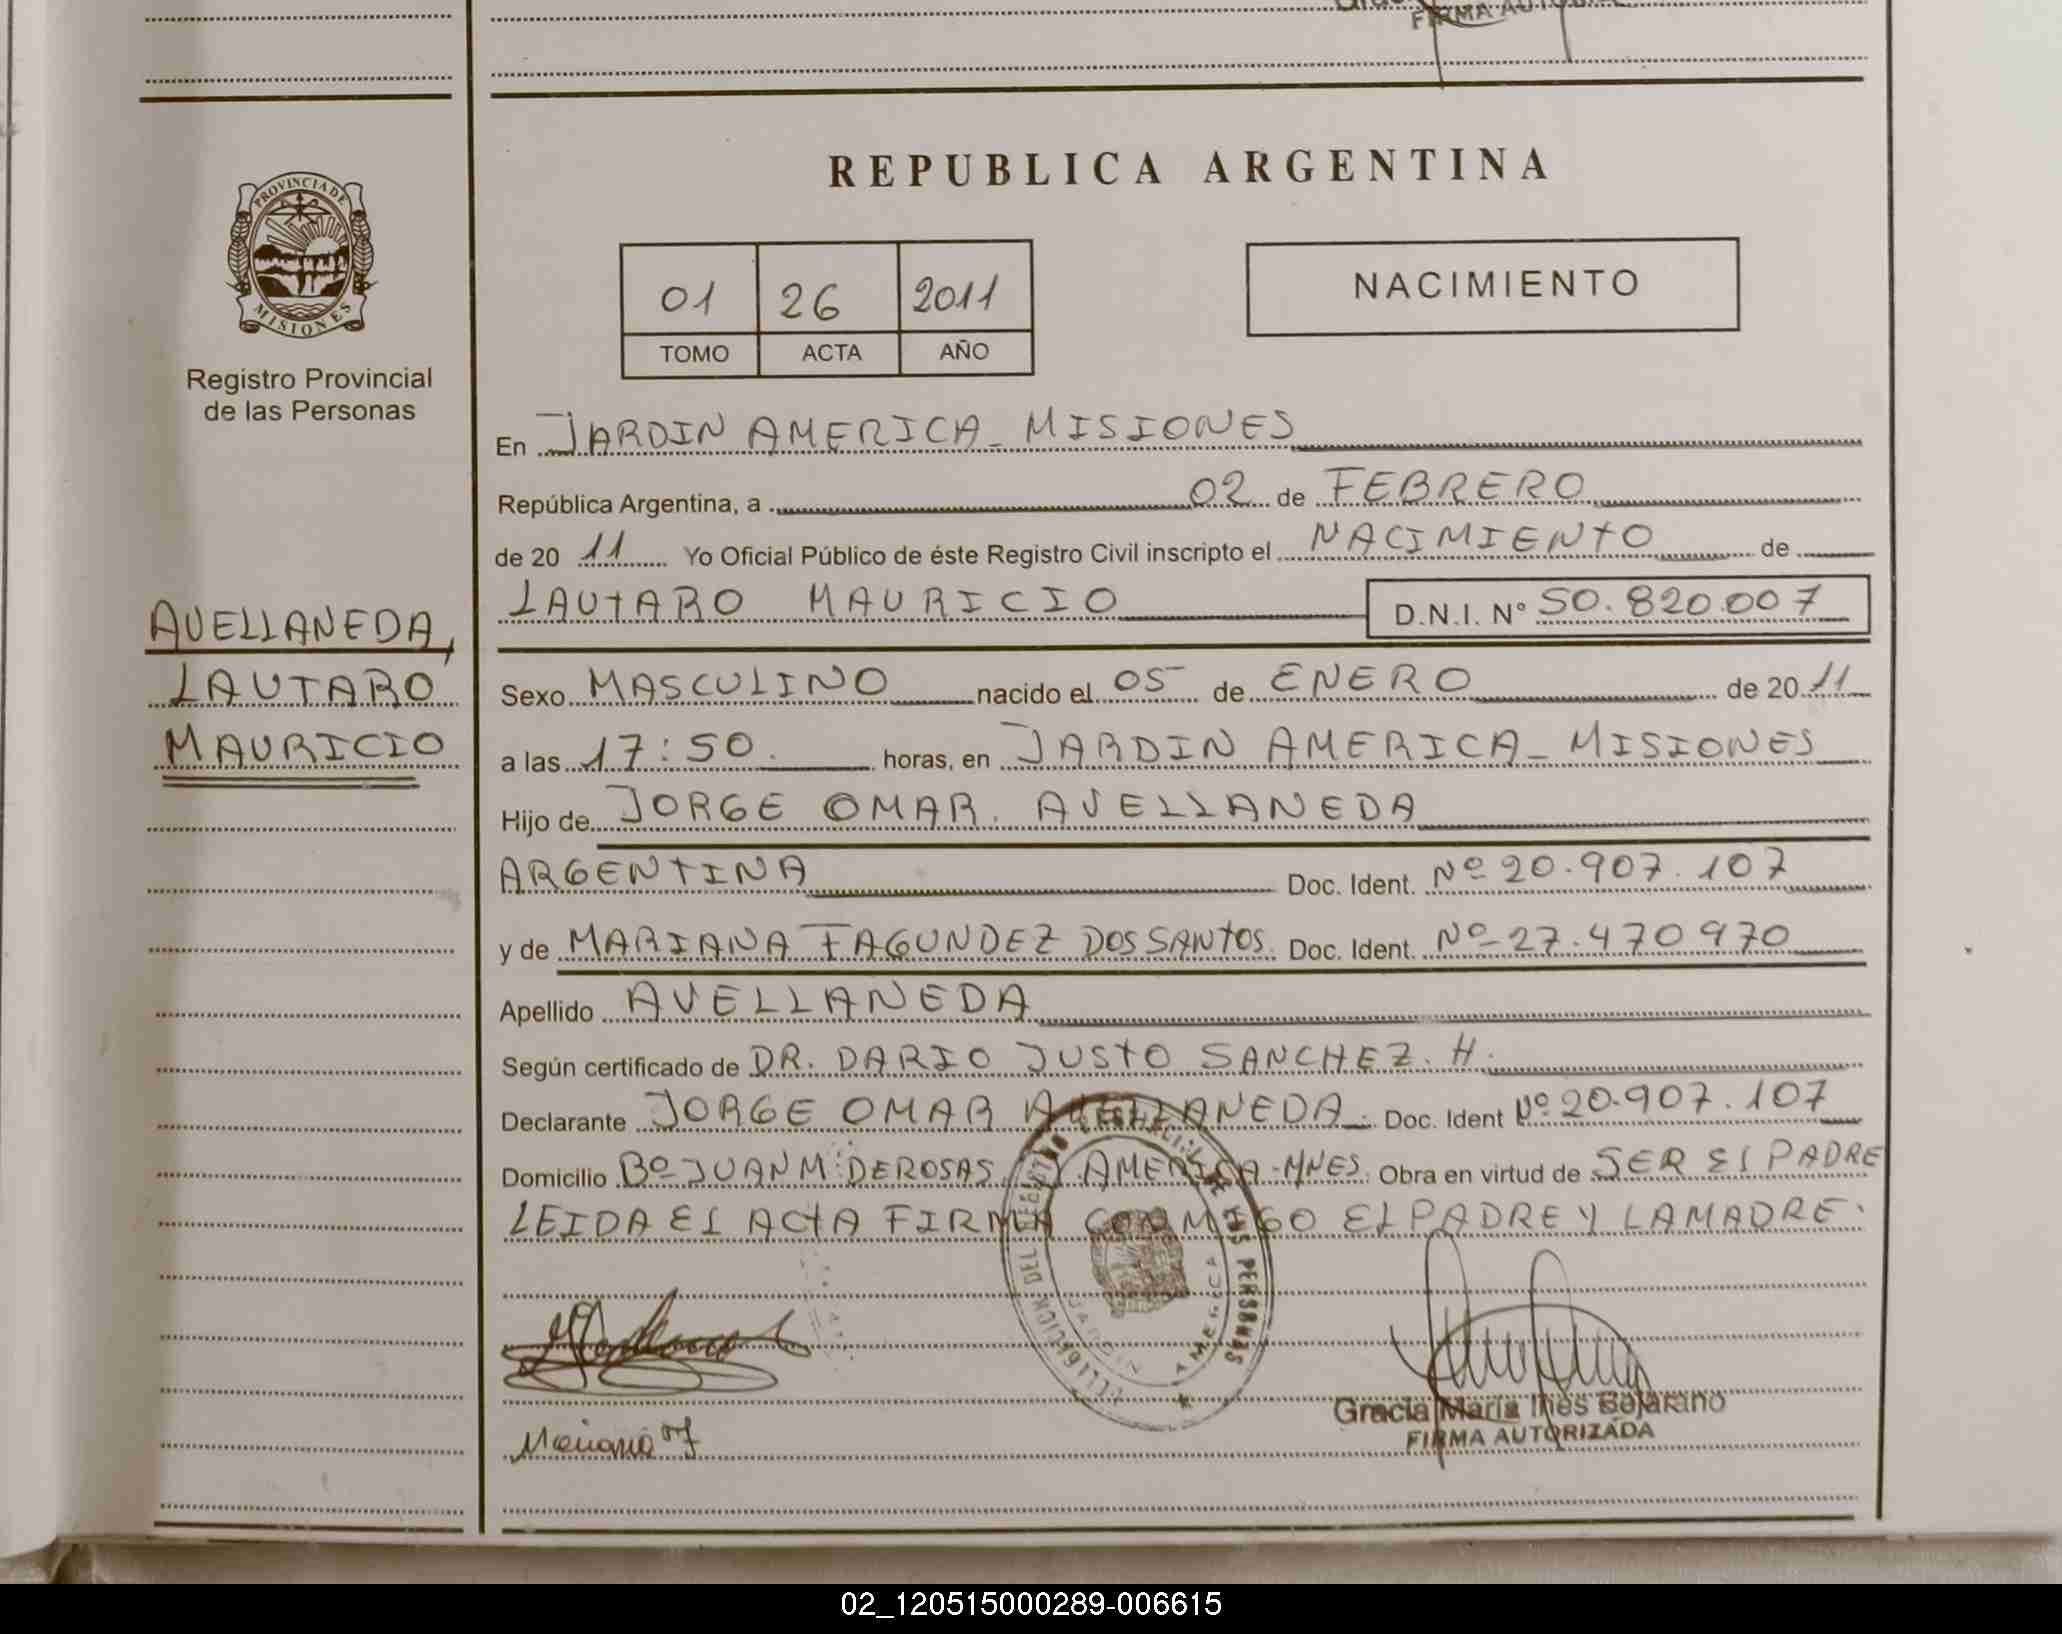 FIRMA AUTORIZADA
REPUBLICA ARGENTINA
PROVINCIA DE
MISIONES
Registro Provincial
de las Personas
01 26 2011
TOMO ACTA AÑO
NACIMIENTO
En JARDIN AMERICA - MISIONES
República Argentina, a 02 de FEBRERO
de 20 11 Yo Oficial Público de éste Registro Civil inscripto el NACIMIENTO de
LAUTARO MAURICIO D.N.I. Nº 50.820.007
AVELLANEDA,
LAUTARO
MAURICIO
Sexo MASCULINO nacido el 05 de ENERO de 20 11
a las 17:50. horas, en JARDIN AMERICA - MISIONES
Hijo de JORGE OMAR. AVELLANEDA
ARGENTINA Doc. Ident. Nº 20.907.107
y de MARIANA FAGUNDEZ DOS SANTOS. Doc. Ident. Nº 27.470970
Apellido AVELLANEDA
Según certificado de DR. DARIO JUSTO SANCHEZ. H.
Declarante JORGE OMAR AVELLANEDA. Doc. Ident Nº 20.907.107
Domicilio Bº JUAN M. DE ROSAS J. AMERICA-MNES. Obra en virtud de SER EL PADRE
LEIDA EL ACTA FIRMA CONMIGO EL PADRE Y LA MADRE.
DEL
PERSONAS
JARDIN AMERICA
Mariana F
Gracia María Inés Bejarano
FIRMA AUTORIZADA
02_120515000289-006615